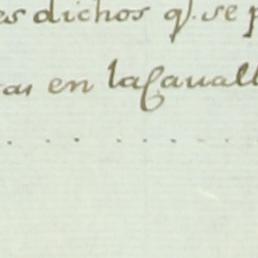 es dichos q.e se p
as en la Cauall